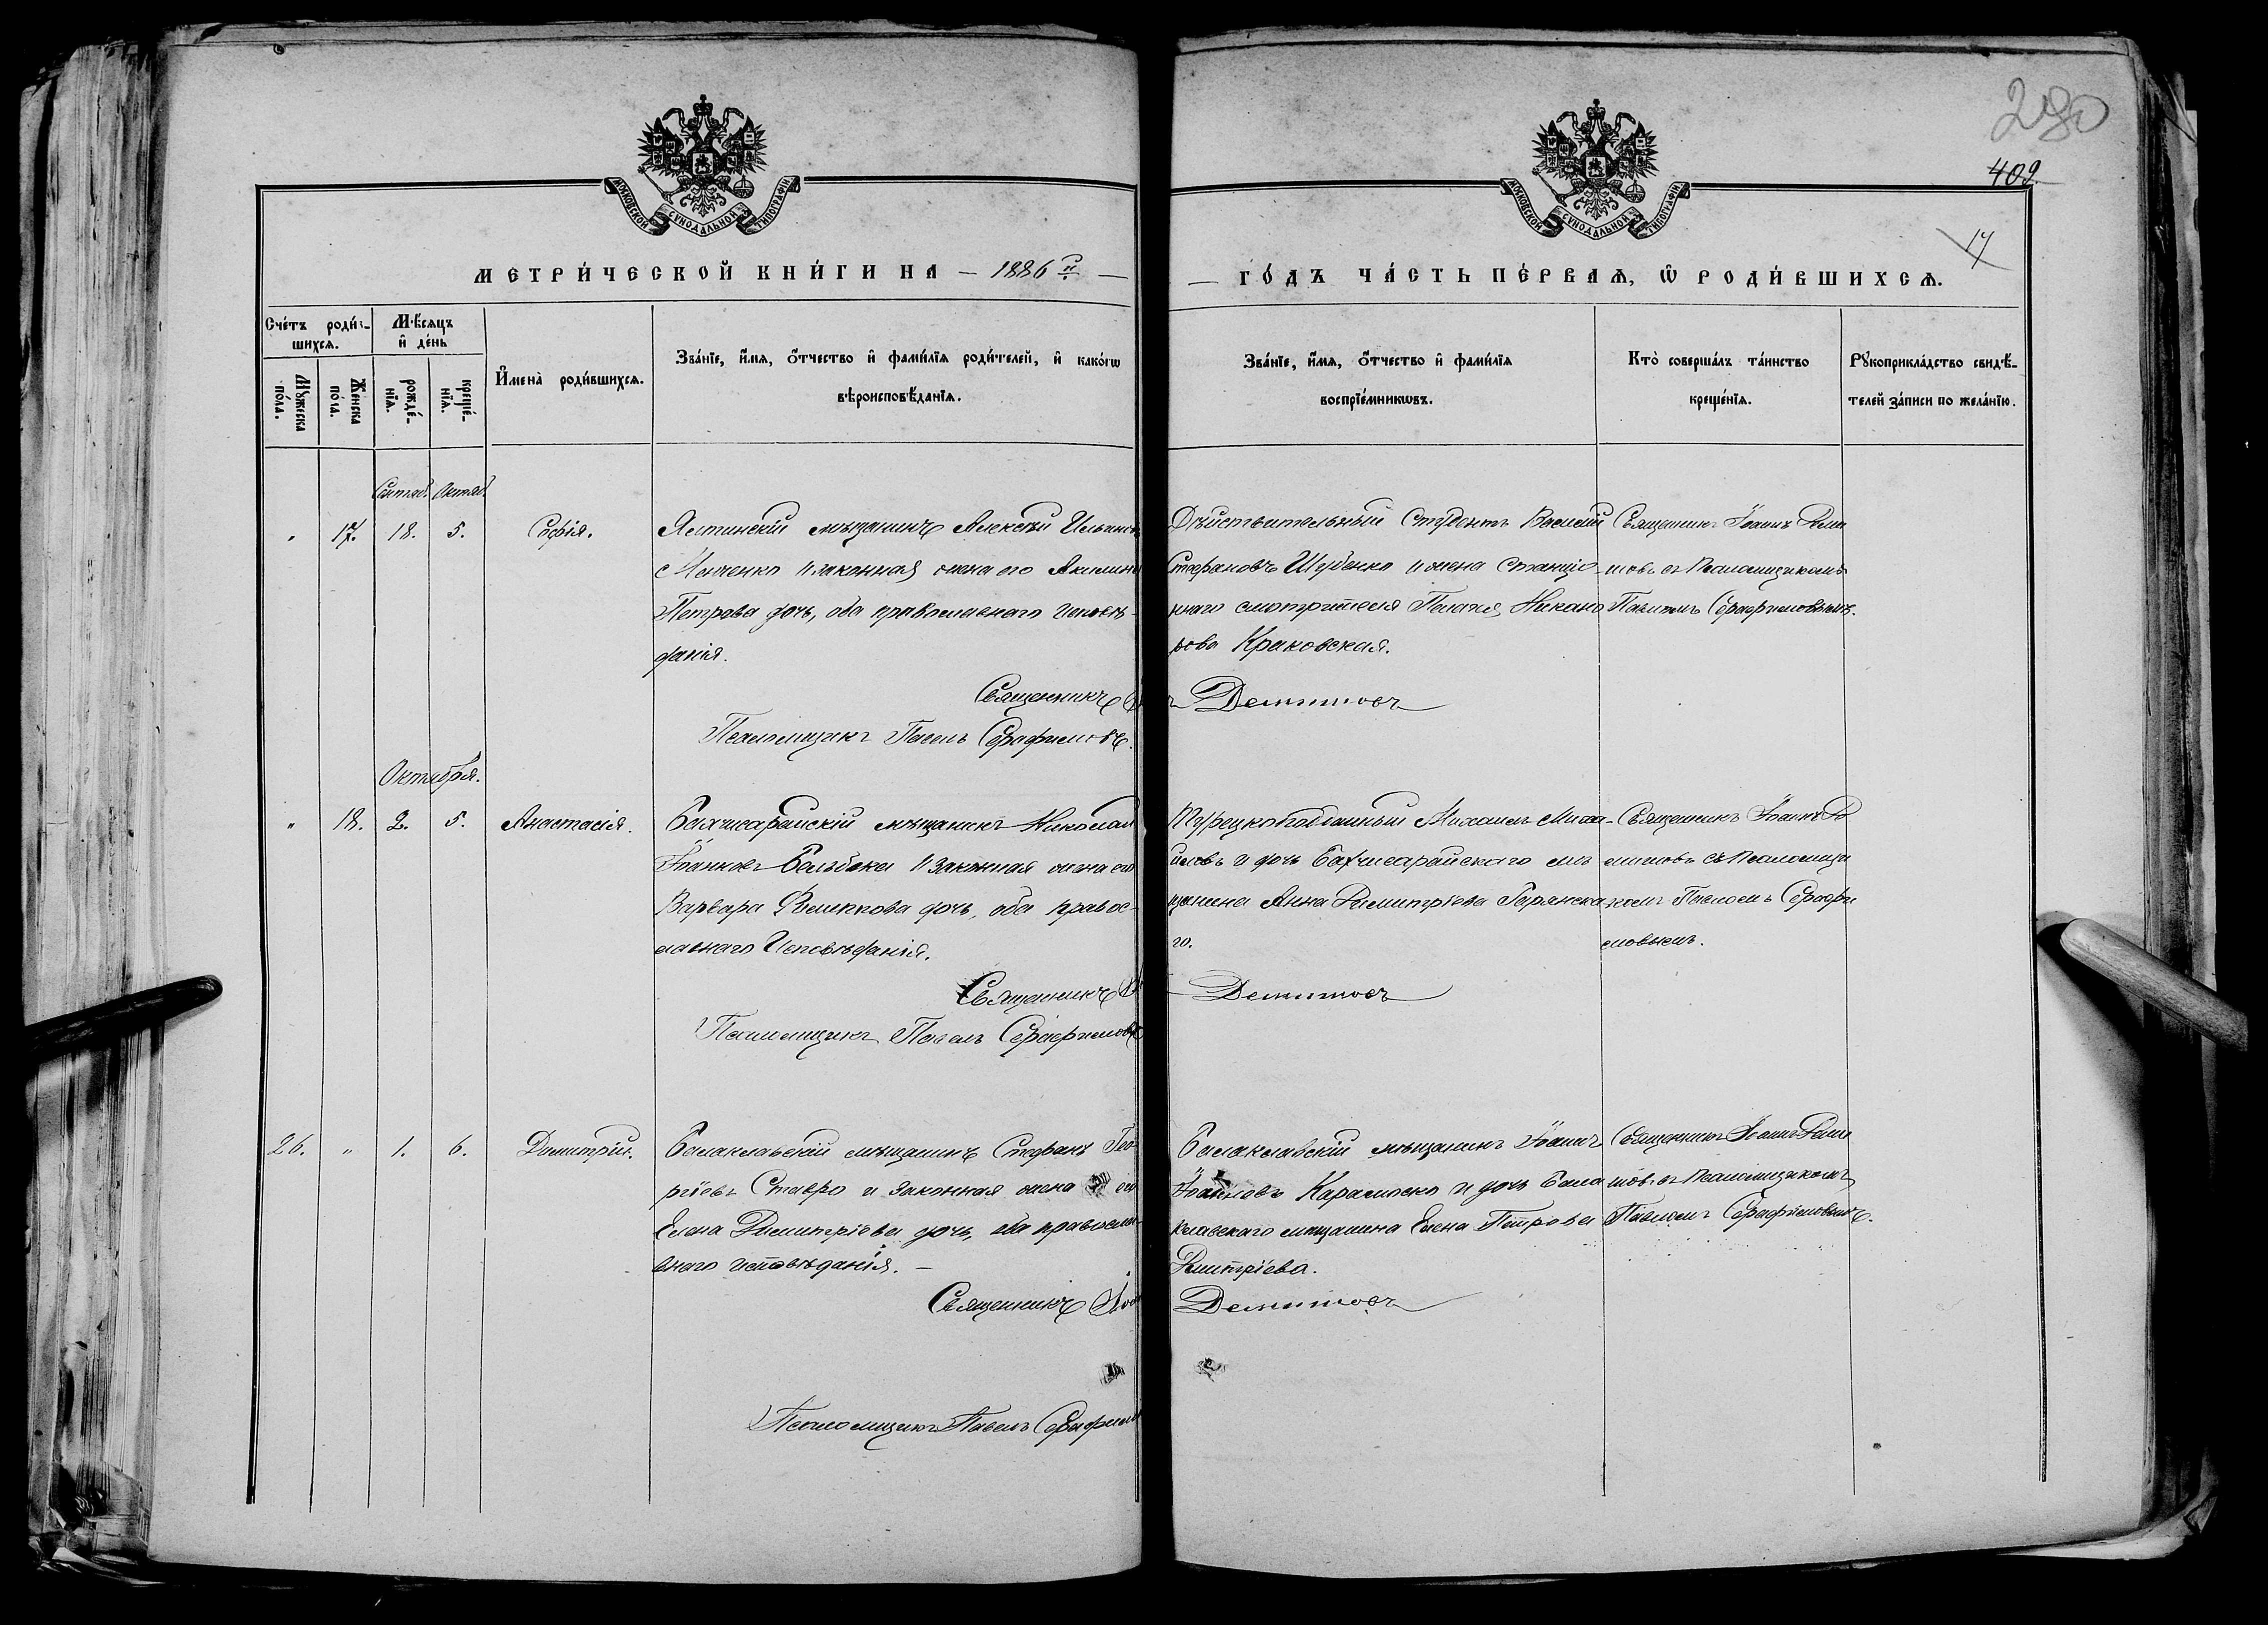 280
409
17
МОСКОВСКОЙ СѴНОДАЛЬНОЙ ТИПОГРАФІИ
МОСКОВСКОЙ СѴНОДАЛЬНОЙ ТИПОГРАФІИ
МЕТРИ́ЧЕСКОЙ КНИ́ГИ НА — 1886 й —
— ГО́ДЪ ЧА́СТЬ ПЕ́РВАѦ, Ѡ҆ РОДИ́ВШИХСѦ.
Сче́тъ роди́в-
шихсѧ.
Мꙋ́жеска
по́ла.
Же́нска
по́ла.
Мѣ́сѧцъ
и҆ де́нь
рожде́-
нїѧ.
креще́-
нїѧ.
И҆мена̀ роди́вшихсѧ.
Зва́нїе, и҆́мѧ, ѻ҆́тчество и҆ фами́лїѧ роди́телей, и҆ како́гѡ
вѣроисповѣ́данїѧ.
Зва́нїе, и҆́мѧ, ѻ҆́тчество и҆ фами́лїѧ
воспрїе́мникѡвъ.
Кто̀ соверша́лъ та́инство
креще́нїѧ.
Рꙋкоприкла́дство свидѣ́-
телей за́писи по жела́нїю.
Сентяб. Октяб.
" 17. 18. 5. Софія.
Ялтинскій мѣщанинъ Алексѣй Ильинъ
Менченко и законная жена его Акилина
Петрова дочь, оба православнаго исповѣ-
данія.
Священникъ
Псаломщикъ Павелъ Серафимовъ.
Дѣйствительный Студентъ Василій
Стефановъ Шубенко и жена станціо-
ннаго смотрителя Пелагія Никано
рова Краковская.
Демитовъ
Священникъ Іоаннъ Деми
товъ съ Псаломщикомъ
Павломъ Серафимовымъ.
Октября.
" 18. 2. 5. Анастасія.
Бахчисарайскій мѣщанинъ Николай
Іоанновъ Бельбека и законная жена его
Варвара Филиппова дочь, оба правос-
лавнаго Исповѣданія.
Священникъ
Псаломщикъ Павелъ Серафимовъ
Турецкоподданный Михаилъ Миха-
иловъ и дочь Бахчисарайскаго мѣ
щанина Анна Димитріева Гарянска
го.
Демитовъ
Священникъ Іоаннъ Де
митовъ съ Псаломщи
комъ Павломъ Серафи
мовымъ.
26. " 1. 6. Димитрій.
Балаклавскій мѣщанинъ Стефанъ Гео-
ргіевъ Ставро и законная жена его
Елена Димитріева дочь, оба правосла-
внаго исповѣданія. —
Священникъ Іоа
Псаломщикъ Павелъ Серафимо
Балаклавскій мѣщанинъ Іоаннъ
Іоанновъ Карамоско и дочь Бала
клавскаго мѣщанина Елена Петрова
Дмитріева.
Демитовъ
Священникъ Іоаннъ Деми
товъ съ Псаломщикомъ
Павломъ Серафимовымъ.